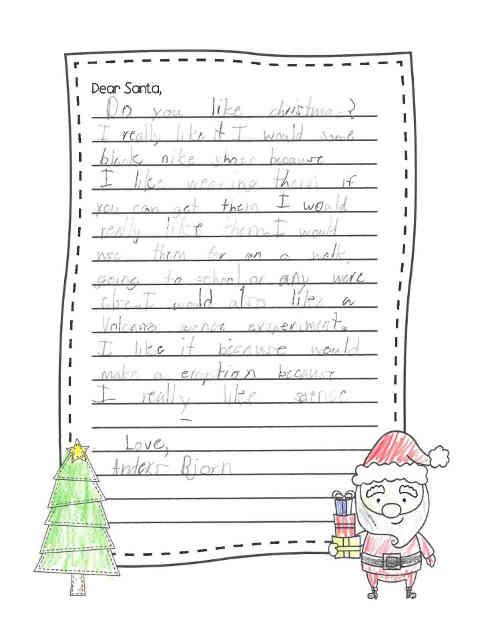 Dear Santa,
Do you like christmas?
I really like it I would some
black nike shose because
I like wearing them if
you can get them I would
really like them. I would
use them for on a walk
going to school or any were
else. I would also like a
Volcano sience experiment.
I like it because would
make a eruption because
I really like sience
Love,
Anders Bjorn